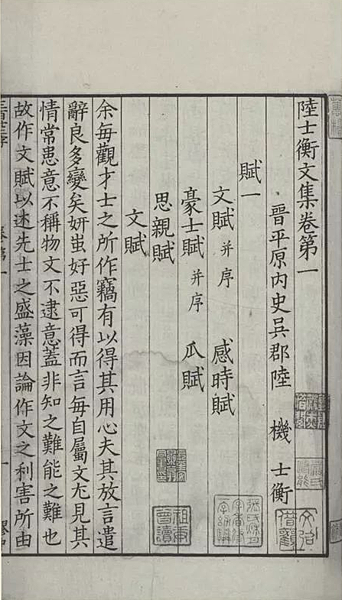 陸士衡文集卷第一
晉平原内史吳郡陸 機 士衡
賦一
文賦并序 感時賦
豪士賦并序 瓜賦
思親賦
文賦
余每觀才士之所作竊有以得其用心夫其放言遣
辭良多變矣妍蚩好惡可得而言每自屬文尤見其
情常患意不稱物文不逮意蓋非知之難能之難也
故作文賦以述先士之盛藻因論作文之利害所由